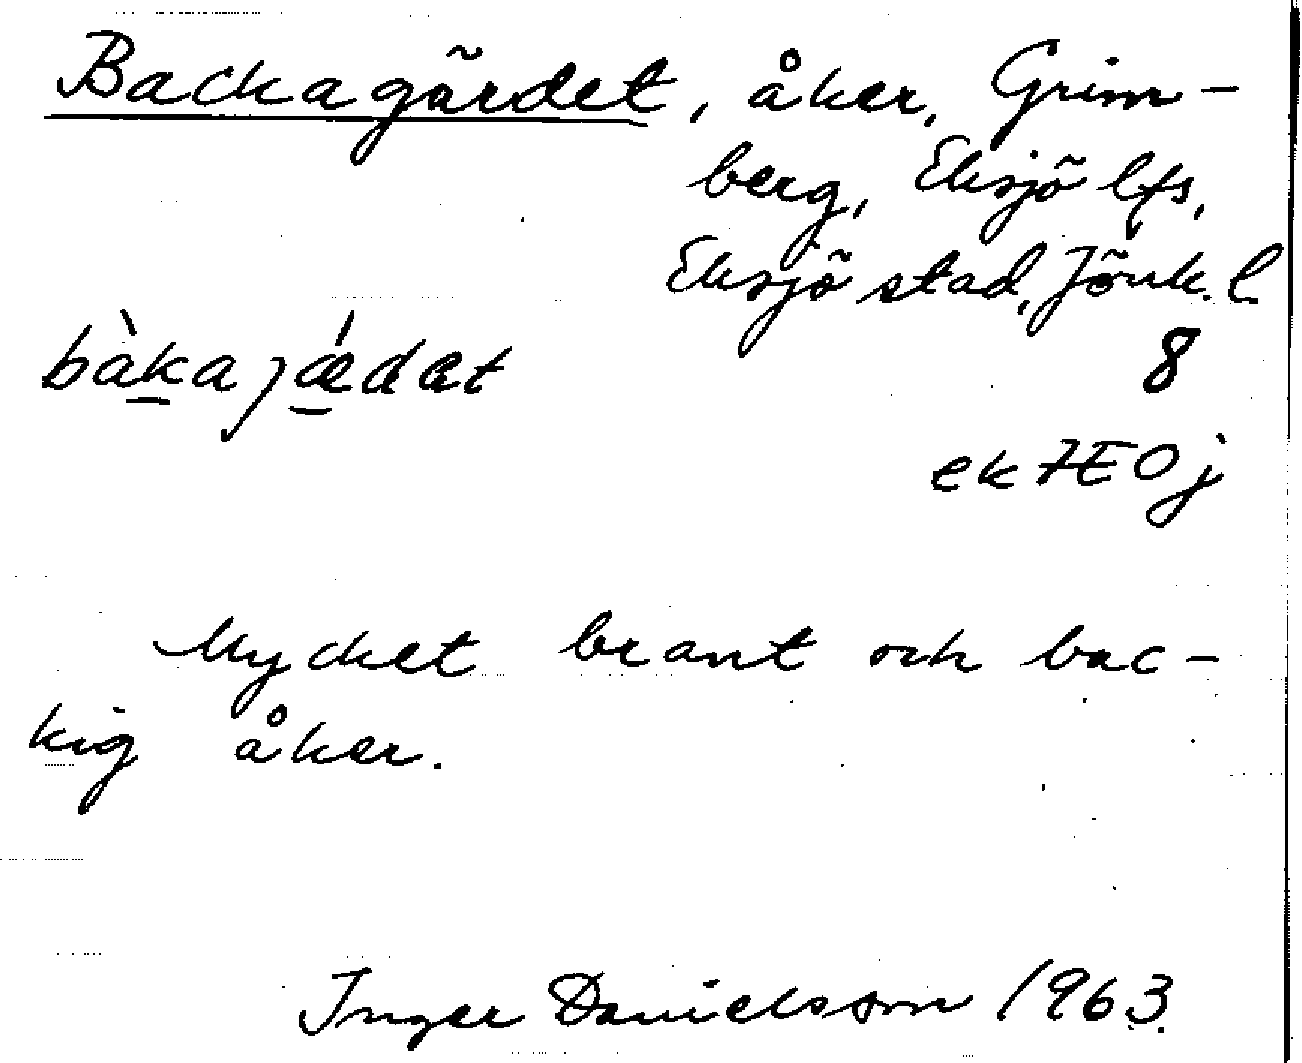 Backagärdet, åker, Grim-
berg, Eksjö lfs,
Eksjö stad, Jönk. l
bàkajǽdæt
8
ek 7E0j
Mycket brant och bac-
kig åker.
Inger Danielsson 1963.